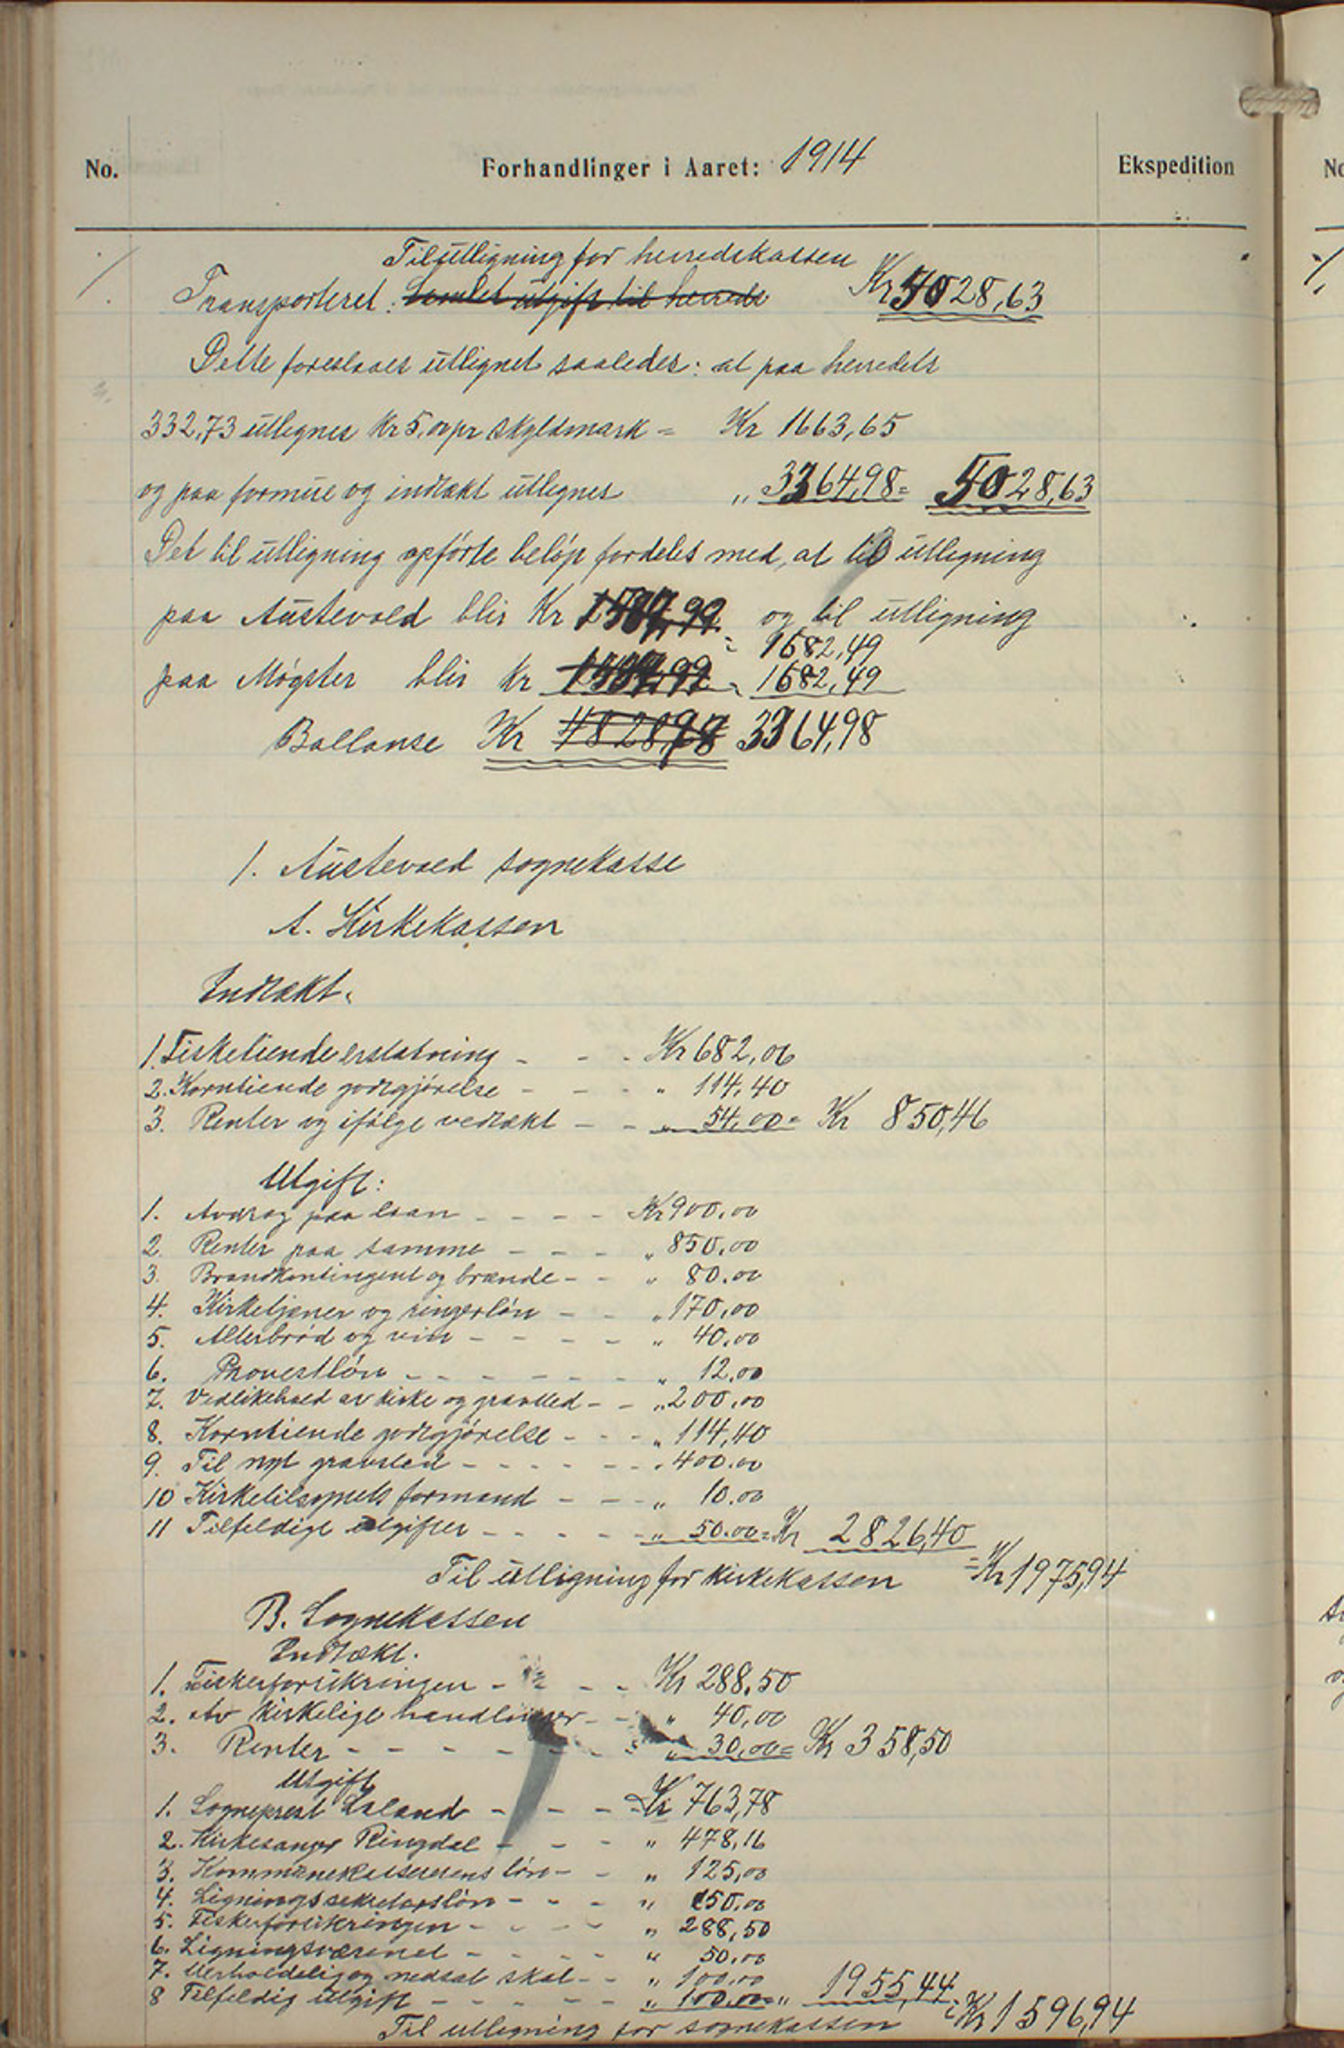 No.
Forhandlinger i Aaret: 1914
Ekspedition
Til utligning for herredskassen
Transporteret: Samlet utgift til herreds Kr 5028,63
Dette foreslaaes utlignet saaledes: at paa herredets
332,73 utlignes Kr 5,00 pr skyldmark = Kr 1663,65
og paa formue og indtækt utlignes " 3364,98 = 5028,63
Det til utligning opførte beløp fordeles med, at til utligning
paa Austevold blir Kr og til utligning
= 1682,49
paa Møgster blir Kr = 1682,49
Ballanse Kr 4828,98 3364,98
1. Austevold sognekasse
A. Kirkekassen
Indtækt.
1. Fisketiendeerstatning - - - Kr 682,06
2. Korntiende godtgjørelse - - - " 114,40
3. Renter og ifølge vedtækt - - " 54,00 = Kr 850,46
Utgift:
1. Avdrag paa laan - - - - Kr 900,00
2. Renter paa samme - - - " 850,00
3. Brandkontingent og brænde - - " 80.00
4. Kirketjener og ringerløn - - " 170,00
5. Alterbrød og vin - - - - " 40,00
6. Provestløn - - - - - - " 12.00
7. Vedlikehold av kirke og gravsted - - " 200,00
8. Korntiende godtgjørelse - - - " 114,40
9. Til nyt gravsted - - - - - - " 400.00
10 Kirketilsynets formand - - - " 10.00
11 Tilfeldige utgifter - - - - - " 50.00 = Kr 2826,40
Til utligning for kirkekassen = Kr 1975,94
B. Sognekassen
Indtækt.
1. Fiskerforsikringen - - - - Kr 288,50
2. Av kirkelige handlinger - - " 40,00
3. Renter - - - - - - - " 30,00 = Kr 358,50
Utgift
1. Sogneprest Laland - - - - Kr 763,78
2. Kirkesanger Ringdal - - - " 478,16
3. Kommunekassererens løn - - " 125,00
4. Ligningssekretærsløn - - - " 50.00
5. Fiskerforsikringen - - - - " 288,50
6. Ligningsvæsenet - - - - " 50.00
7. Uerholdelig og nedsat skat - - " 100,00
8 Tilfeldig utgift - - - - - - " 100,00 = " 1955,44
Til utligning for sognekassen = Kr 1596,94